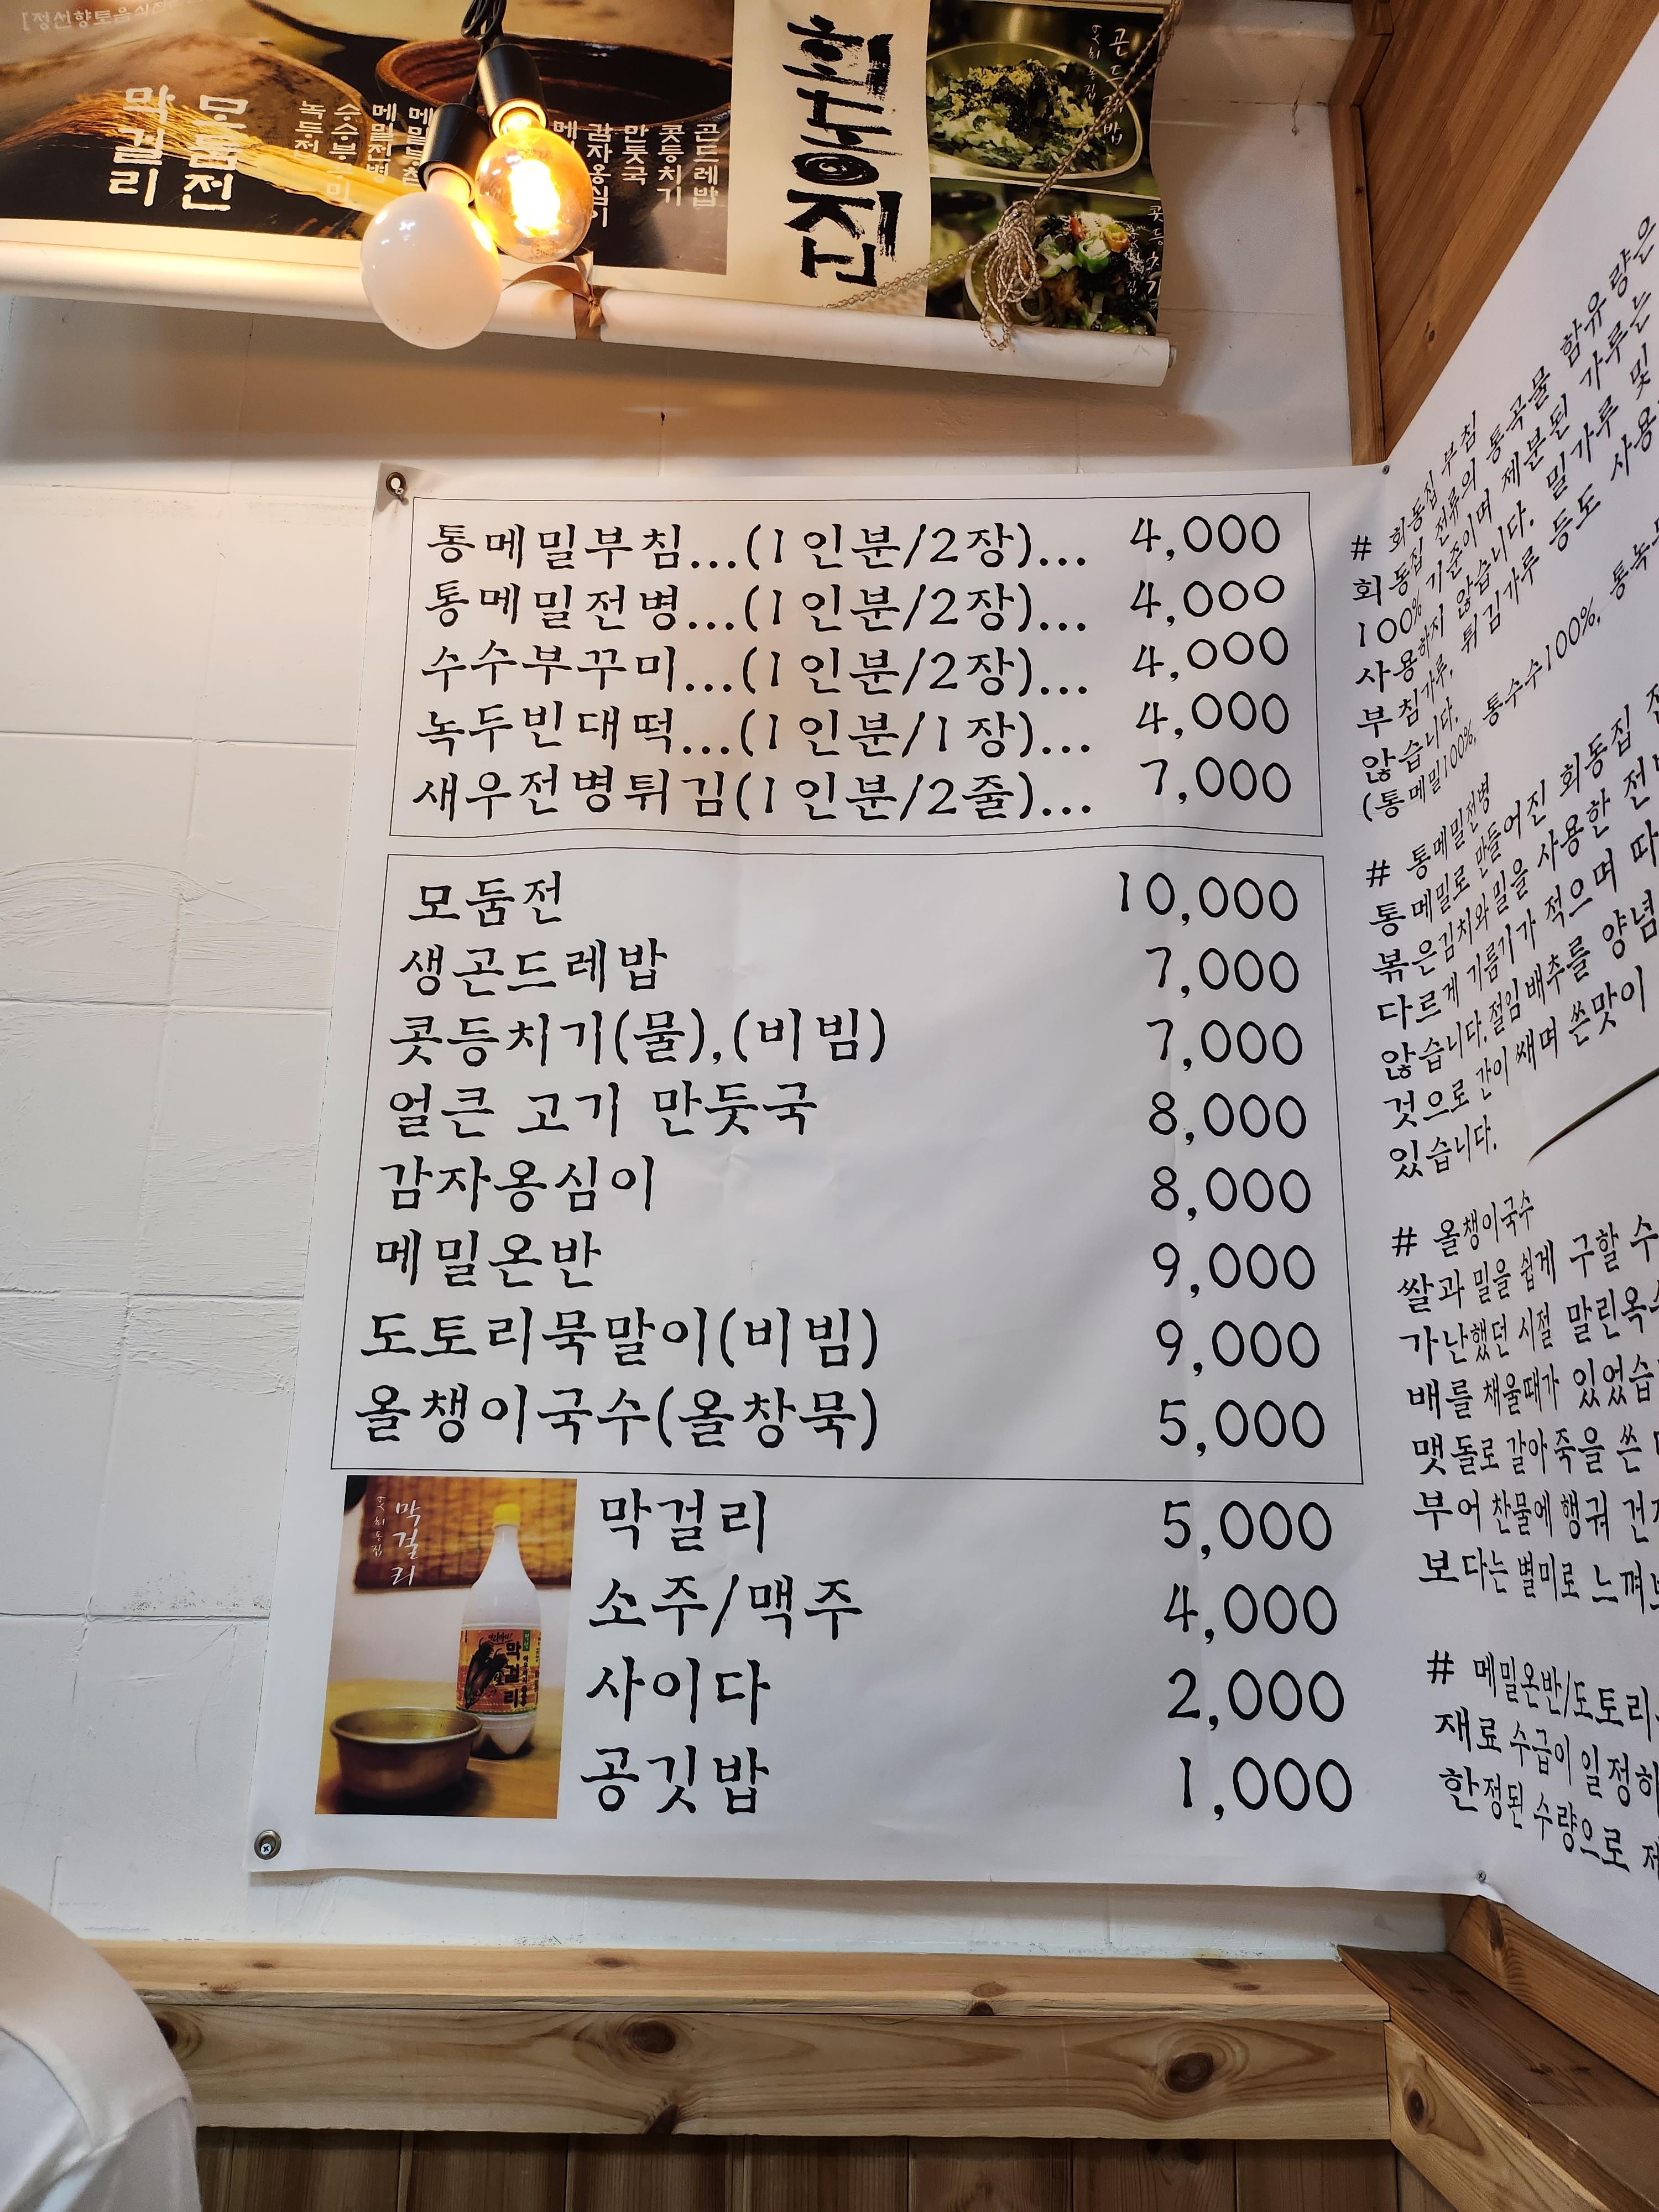 [정선향토음식전
모둠전
막걸리
녹두전
수수부꾸미
메밀전병
곤드레밥
콧등치기
만둣국
감자옹심이
회동집
곤드레밥
콧등치기
통메밀부침...(1인분/2장)... 4,000
통메밀전병...(1인분/2장)... 4,000
수수부꾸미...(1인분/2장)... 4,000
녹두빈대떡...(1인분/1장)... 4,000
새우전병튀김(1인분/2줄)... 7,000
모둠전 10,000
생곤드레밥 7,000
콧등치기(물),(비빔) 7,000
얼큰 고기 만둣국 8,000
감자옹심이 8,000
메밀온반 9,000
도토리묵말이(비빔) 9,000
올챙이국수(올창묵) 5,000
막걸리
회동집
막걸리
막걸리 5,000
소주/맥주 4,000
사이다 2,000
공깃밥 1,000
# 회동집 부침
회동집 전류의 통곡물 함유량은
100% 기준이며 제분된 가루는
사용하지 않습니다. 밀가루 및
부침가루, 튀김가루 등도 사용
않습니다.
(통메밀100%, 통수수100%, 통녹두
# 통메밀전병
통메밀로 만들어진 회동집
볶은김치와 밀을 사용한 전
다르게 기름기가 적으며 따
않습니다. 절임배추를 양념
것으로 간이 쌔며 쓴맛이
있습니다.
# 올챙이국수
쌀과 밀을 쉽게 구할 수
가난했던 시절 말린옥수
배를 채울때가 있었습
맷돌로 갈아 죽을 쓴
부어 찬물에 행궈 건
보다는 별미로 느껴
# 메밀온반/도토리
재료 수급이 일정하
한정된 수량으로 제